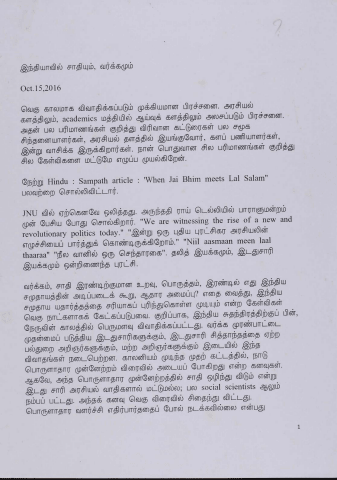 இந்தியாவில் சாதியும், வர்க்கமும்
Oct.15,2016
வெகு காலமாக விவாதிக்கப்படும் முக்கியமான பிரச்சனை. அரசியல்
களத்திலும், academics மத்தியில் ஆய்வுக் களத்திலும் அலசப்படும் பிரச்சனை.
அதன் பல பரிமாணங்கள் குறித்து விரிவான கட்டுரைகள் பல சமூக
சிந்தனையாளர்கள், அரசியல் தளத்தில் இயங்குவோர், களப் பணியாளர்கள்,
இன்று வாசிக்க இருக்கிறார்கள். நான் பொதுவான சில பரிமாணங்கள் குறித்து
சில கேள்விகளை மட்டுமே எழுப்ப முயல்கிறேன்.
நேற்று Hindu : Sampath article : 'When Jai Bhim meets Lal Salam"
பலவற்றை சொல்லிவிட்டார்.
JNU வில் ஏற்கெனவே ஒலித்தது. அருந்ததி ராய் டெல்லியில் பாராளுமன்றம்
முன் பேசிய போது சொல்கிறார். "We are witnessing the rise of a new and
revolutionary politics today." "இன்று ஒரு புதிய புரட்சிகர அரசியலின்
எழுச்சியைப் பார்த்துக் கொண்டிருக்கிறோம்." "Niil aasmaan meen laal
thaaraa" "நீல வானில் ஒரு செந்தாரகை". தலித் இயக்கமும், இடதுசாரி
இயக்கமும் ஒன்றிணைந்த புரட்சி.
வர்க்கம், சாதி இரண்டிற்குமான உறவு, பொருத்தம், இரண்டில் எது இந்திய
சமுதாயத்தின் அடிப்படைக் கூறு, ஆதார அமைப்பு? எதை வைத்து, இந்திய
சமுதாய யதார்த்தத்தை சரியாகப் புரிந்துகொள்ள முடியும் என்ற கேள்விகள்
வெகு நாட்களாகக் கேட்கப்படுபவை. குறிப்பாக, இந்திய சுதந்திரத்திற்குப் பின்,
நேருவின் காலத்தில் பெருமளவு விவாதிக்கப்பட்டது. வர்க்க முரண்பாட்டை
முதன்மைப் படுத்திய இடதுசாரிகளுக்கும், இடதுசாரி சித்தாந்தத்தை ஏற்ற
பல்துறை அறிஞர்களுக்கும், மற்ற அறிஞர்களுக்கும் இடையில் இந்த
விவாதங்கள் நடைபெற்றன. காலனியம் முடிந்த முதற் கட்டத்தில், நாடு
பொருளாதார முன்னேற்றம் விரைவில் அடையப் போகிறது என்ற கனவுகள்.
ஆகவே, அந்த பொருளாதார முன்னேற்றத்தில் சாதி ஒழிந்து விடும் என்று
இடது சாரி அரசியல் வாதிகளால் மட்டுமல்ல; பல social scientists ஆலும்
நம்பப் பட்டது. அந்தக் கனவு வெகு விரைவில் சிதைந்து விட்டது.
பொருளாதார வளர்ச்சி எதிர்பார்த்ததைப் போல் நடக்கவில்லை என்பது
1